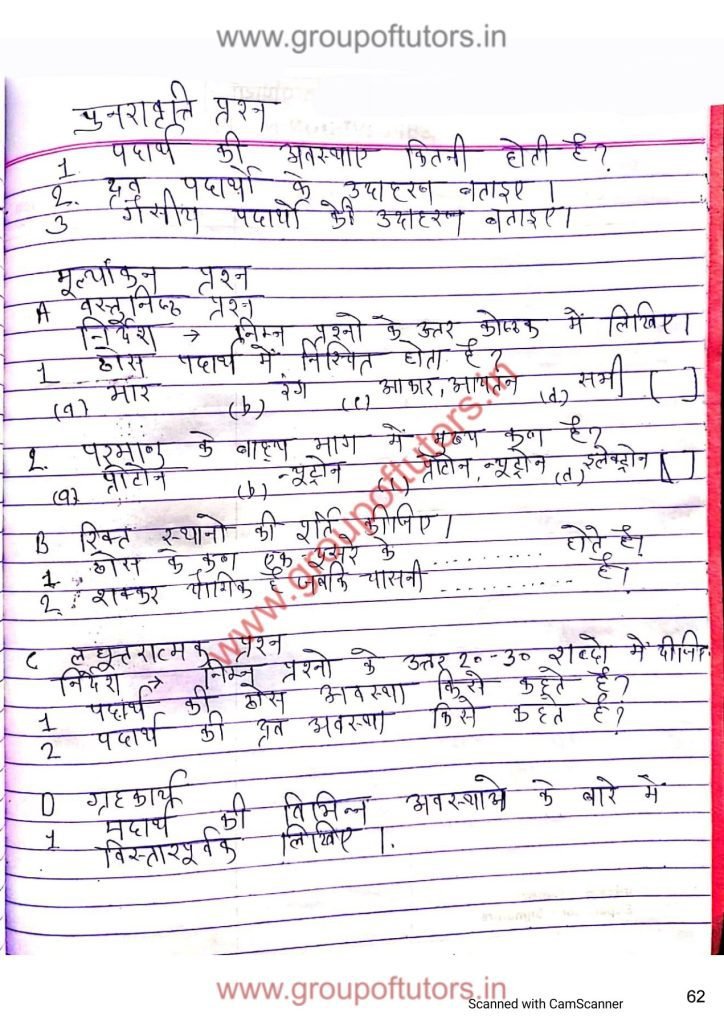 www.groupoftutors.in
पुनरावृत्ति प्रश्न
1 पदार्थ की अवस्थाए कितनी होती है?
2. द्रव पदार्थो के उदाहरण बताइए।
3 गैसीय पदार्थो के उदाहरण बताइए।
मूल्यांकन प्रश्न
A वस्तुनिष्ठ प्रश्न
निर्देश → निम्न प्रश्नो के उत्तर कोष्ठक में लिखिए।
1 ठोस पदार्थ में निश्चित होता है?
(a) भार (b) रंग (c) आकार, आयतन (d) सभी [ ]
2. परमाणु के बाह्य भाग में मुख्य कण है?
(a) प्रोटोन (b) न्यूट्रोन (c) प्रोटोन, न्यूट्रोन (d) इलेक्ट्रोन [ ]
B रिक्त स्थानो की पूर्ति कीजिए।
1. ठोस के कण एक दूसरे के ............ होते है।
2. शक्कर यौगिक है जबकि चासनी ............ है।
C लघूत्तरात्मक प्रश्न
निर्देश → निम्न प्रश्नो के उत्तर 20-30 शब्दो में दीजिए
1 पदार्थ की ठोस अवस्था किसे कहते है?
2 पदार्थ की द्रव अवस्था किसे कहते है?
D ग्रहकार्य
1 पदार्थ की विभिन्न अवस्थाओ के बारे में
विस्तारपूर्वक लिखिए।
www.groupoftutors.in
www.groupoftutors.in
Scanned with CamScanner
62